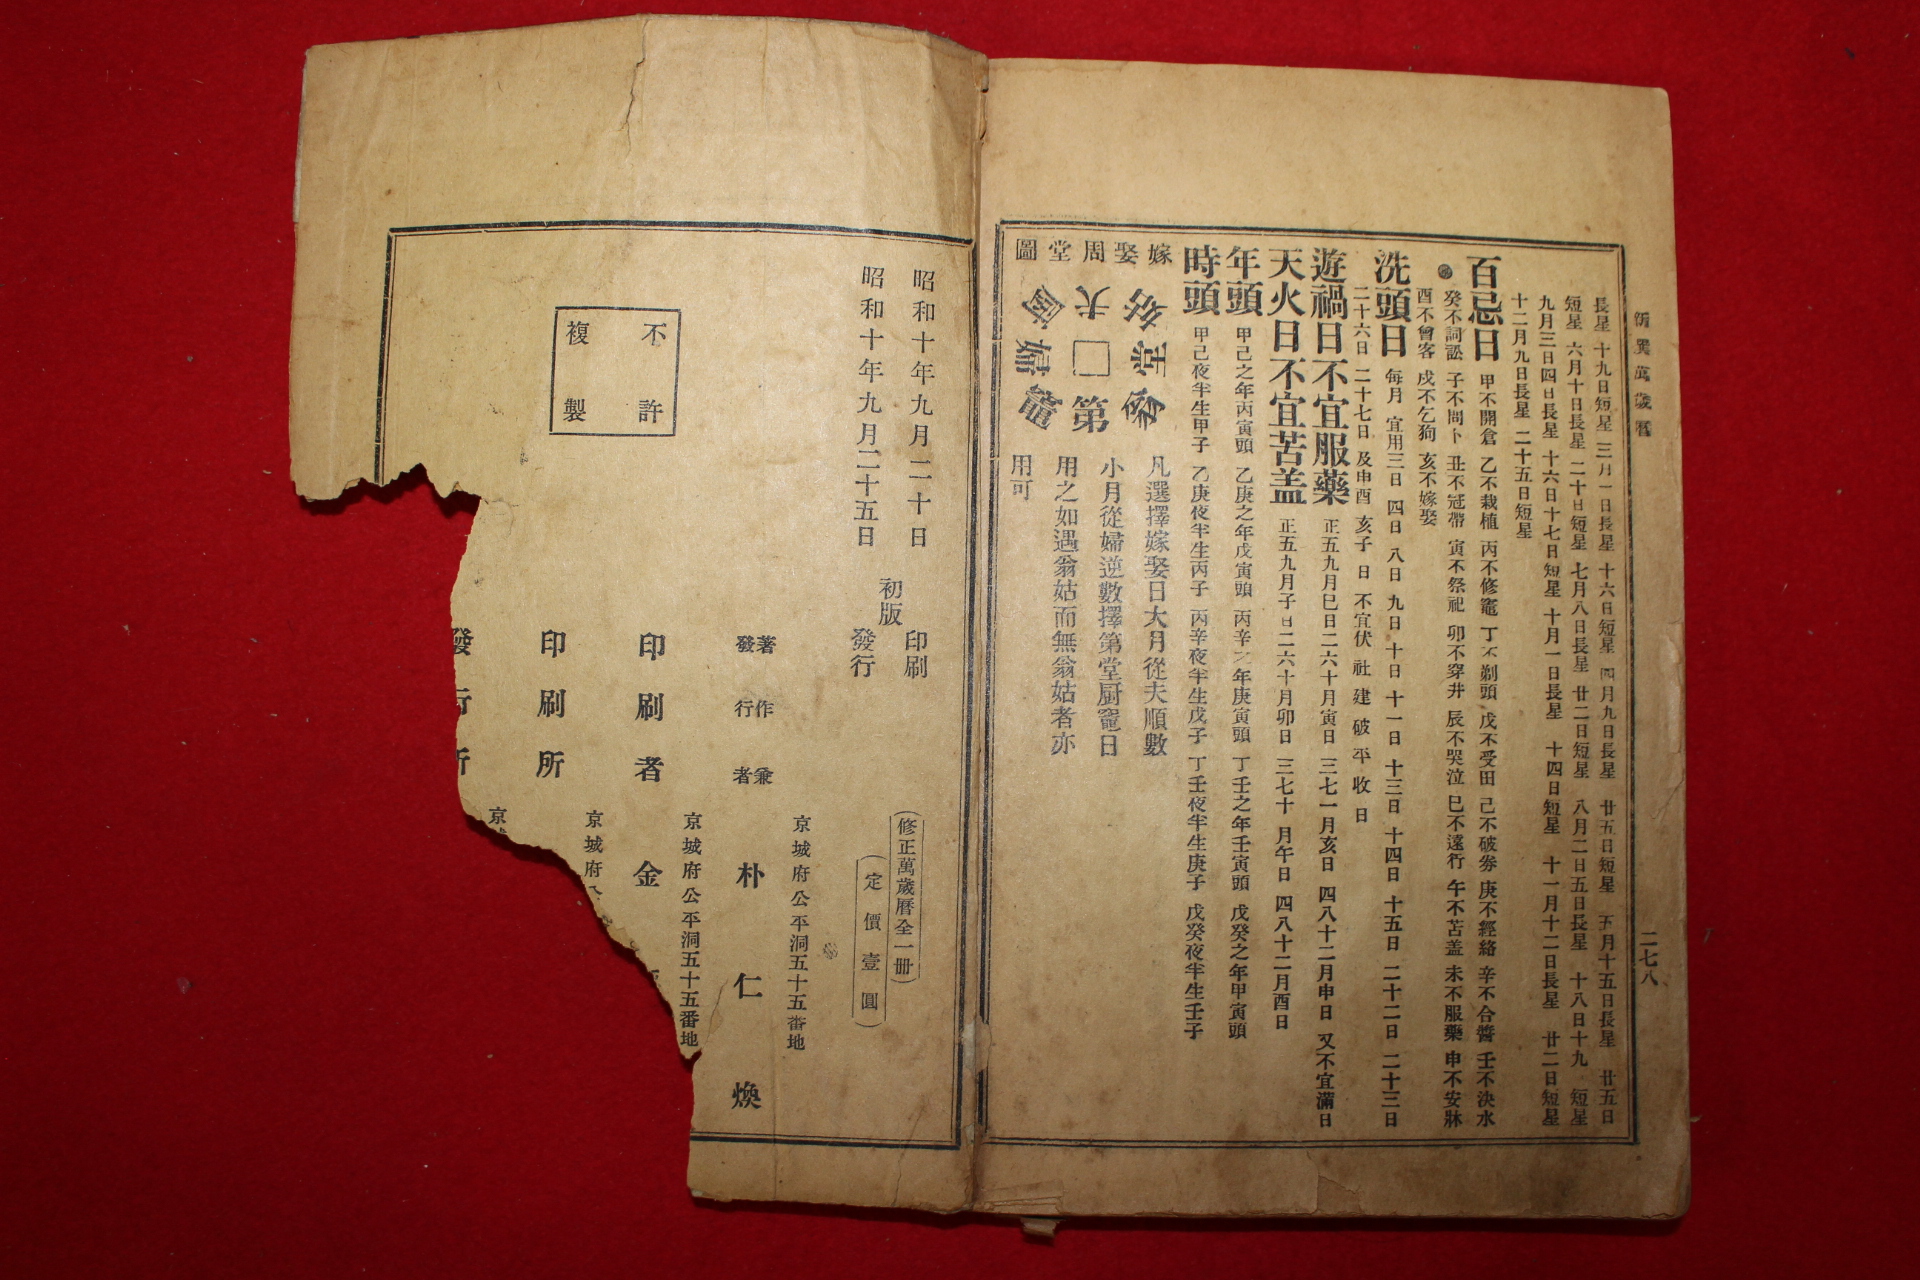 新巽萬歲曆
二七八
長星 十九日短星 三月一日長星 十六日短星 四月九日長星 廿五日短星 五月十五日長星 廿五日
短星 六月十日長星 二十日短星 七月八日長星 廿二日短星 八月二日五日長星 十八日十九 短星
九月三日四日長星 十六日十七日短星 十月一日長星 十四日短星 十一月十二日長星 廿二日短星
十二月九日長星 二十五日短星
百忌日 甲不開倉 乙不栽植 丙不修竈 丁不剃頭 戊不受田 己不破券 庚不經絡 辛不合醬 壬不決水
癸不詞訟 子不問卜 丑不冠帶 寅不祭祀 卯不穿井 辰不哭泣 巳不遠行 午不苫盖 未不服藥 申不安牀
酉不會客 戌不乞狗 亥不嫁娶
洗頭日 每月 宜用三日 四日 八日 九日 十日 十一日 十三日 十四日 十五日 二十二日 二十三日
二十六日 二十七日 及申酉 亥子 日 不宜伏 社 建 破 平 收 日
遊禍日不宜服藥 正五九月巳日二六十月寅日 三七一月亥日 四八十二月申日 又不宜滿日
天火日不宜苫盖 正五九月子日二六十月卯日 三七十 月午日 四八十二月酉日
年頭 甲己之年丙寅頭 乙庚之年戊寅頭 丙辛之年庚寅頭 丁壬之年壬寅頭 戊癸之年甲寅頭
時頭 甲己夜半生甲子 乙庚夜半生丙子 丙辛夜半生戊子 丁壬夜半生庚子 戊癸夜半生壬子
嫁娶周堂圖
姑 堂 翁
夫 第
廚 婦 竈
凡選擇嫁娶日大月從夫順數
小月從婦逆數擇第堂厨竈日
用之如遇翁姑而無翁姑者亦
用可
昭和十年九月二十日 印刷
昭和十年九月二十五日 發行
初版
(修正萬歲曆全一冊)
(定價壹圓)
不許
複製
京城府公平洞五十五番地
著作兼
發行者 朴仁煥
京城府公平洞五十五番地
印刷者 金
京城府公
印刷所
京城
發行所